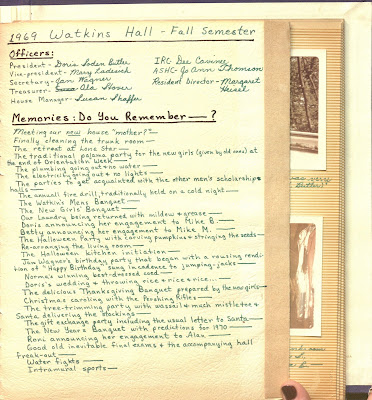 1969 Watkins Hall - Fall Semester
Officers:
President - Doris Loden Butler
Vice-president - Mary Ladesich
Secretary - Jan Wagner
Treasurer - Ala Hover
House Manager - Susan Shaffer
IRC - Dee Cavine
ASHC - Jo Ann Thomson
Resident Director - Margaret
Heisel
Memories: Do You Remember — ?
Meeting our new house "mother?" —
Finally cleaning the trunk room —
The retreat at Lone Star —
The traditional pajama party for the new girls (given by old ones) at
the end of Orientation Week —
The plumbing going out + no water —
The electricity going out + no lights —
The parties to get acquainted with the other men's scholarship
halls —
The annual fire drill, traditionally held on a cold night —
The Watkin's Mens Banquet —
The New Girls' Banquet —
Our Laundry being returned with mildew + grease —
Doris announcing her engagement to Mike B. —
Betty announcing her engagement to Mike M. —
The Halloween Party with carving pumpkins + stringing the seeds —
Re-arranging the living room —
The Halloween kitchen initiation —
Jim Wagner's birthday party that began with a rousing rendi-
tion of "Happy Birthday" sung in cadence to jumping-jacks —
Norma winning best-dressed coed —
Doris's wedding + throwing rice + rice + rice...
The delicious Thanksgiving Banquet prepared by the new girls —
Christmas caroling with the Pershing Rifles —
The tree-trimming party with wassail + much mistletoe +
Santa delivering the stockings —
The gift exchange party including the usual letter to Santa —
The New Year's Banquet with predictions for 1970 —
Roni announcing her engagement to Alan —
Good old inevitable final exams + the accompanying hall
freak-out —
Water fights —
Intramural sports —
was very